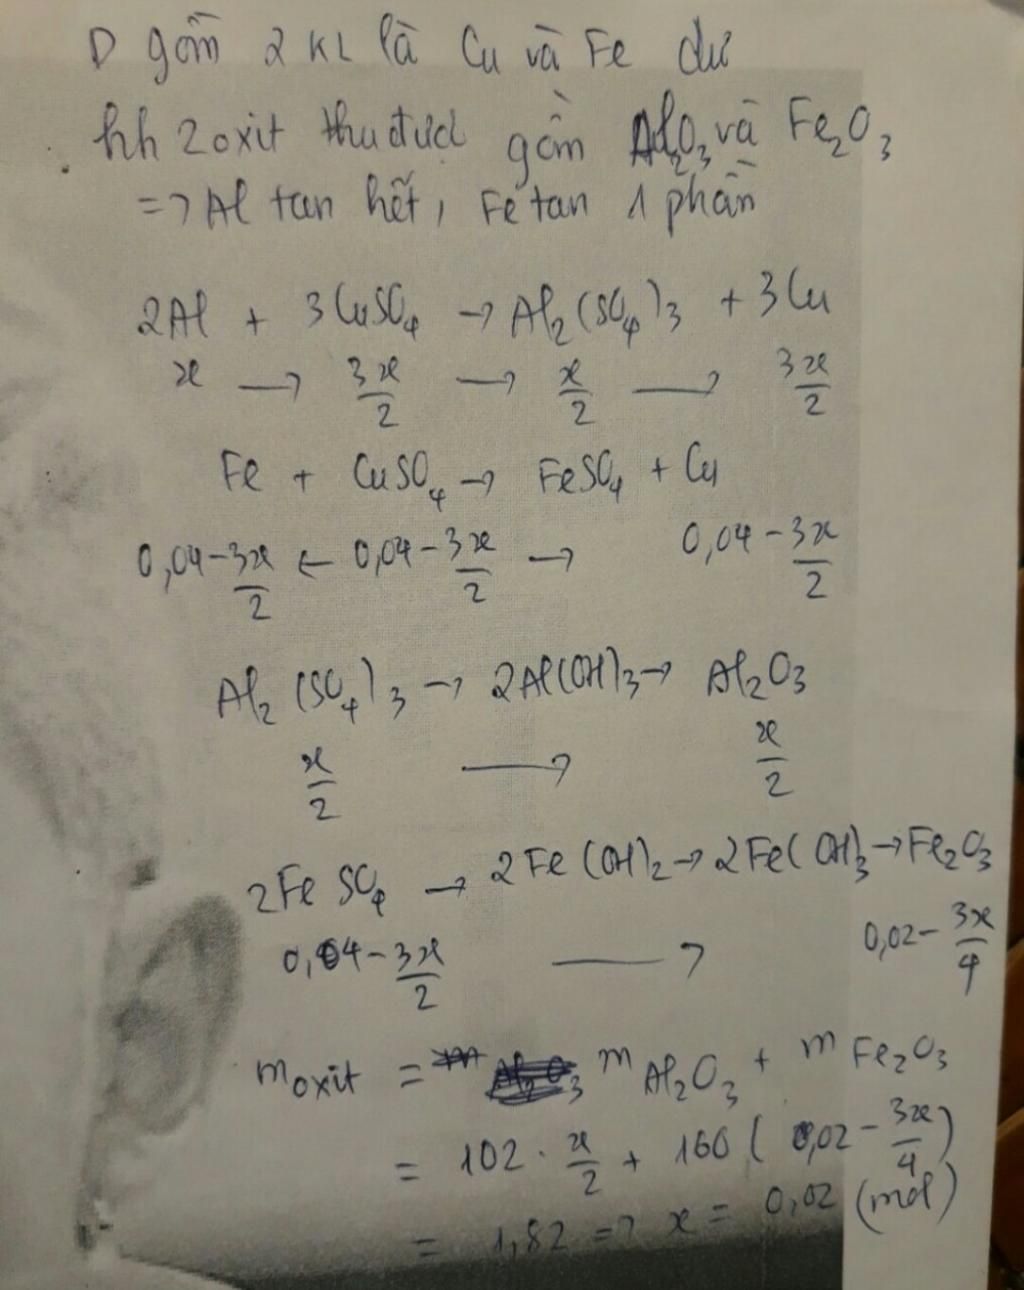 D gồm 2 KL là Cu và Fe dư
hh 2 oxit thu được gồm Al2O3 và Fe2O3
=> Al tan hết, Fe tan 1 phần
2Al + 3CuSO4 → Al2(SO4)3 + 3Cu
x → 3x/2 → x/2 → 3x/2
Fe + CuSO4 → FeSO4 + Cu
0,04-3x/2 ← 0,04-3x/2 → 0,04-3x/2
Al2(SO4)3 → 2Al(OH)3 → Al2O3
x/2 → x/2
2FeSO4 → 2Fe(OH)2 → 2Fe(OH)3 → Fe2O3
0,04-3x/2 → 0,02-3x/4
m oxit = m Al2O3 + m Fe2O3
= 102 . x/2 + 160 ( 0,02 - 3x/4 )
= 1,82 => x = 0,02 (mol)